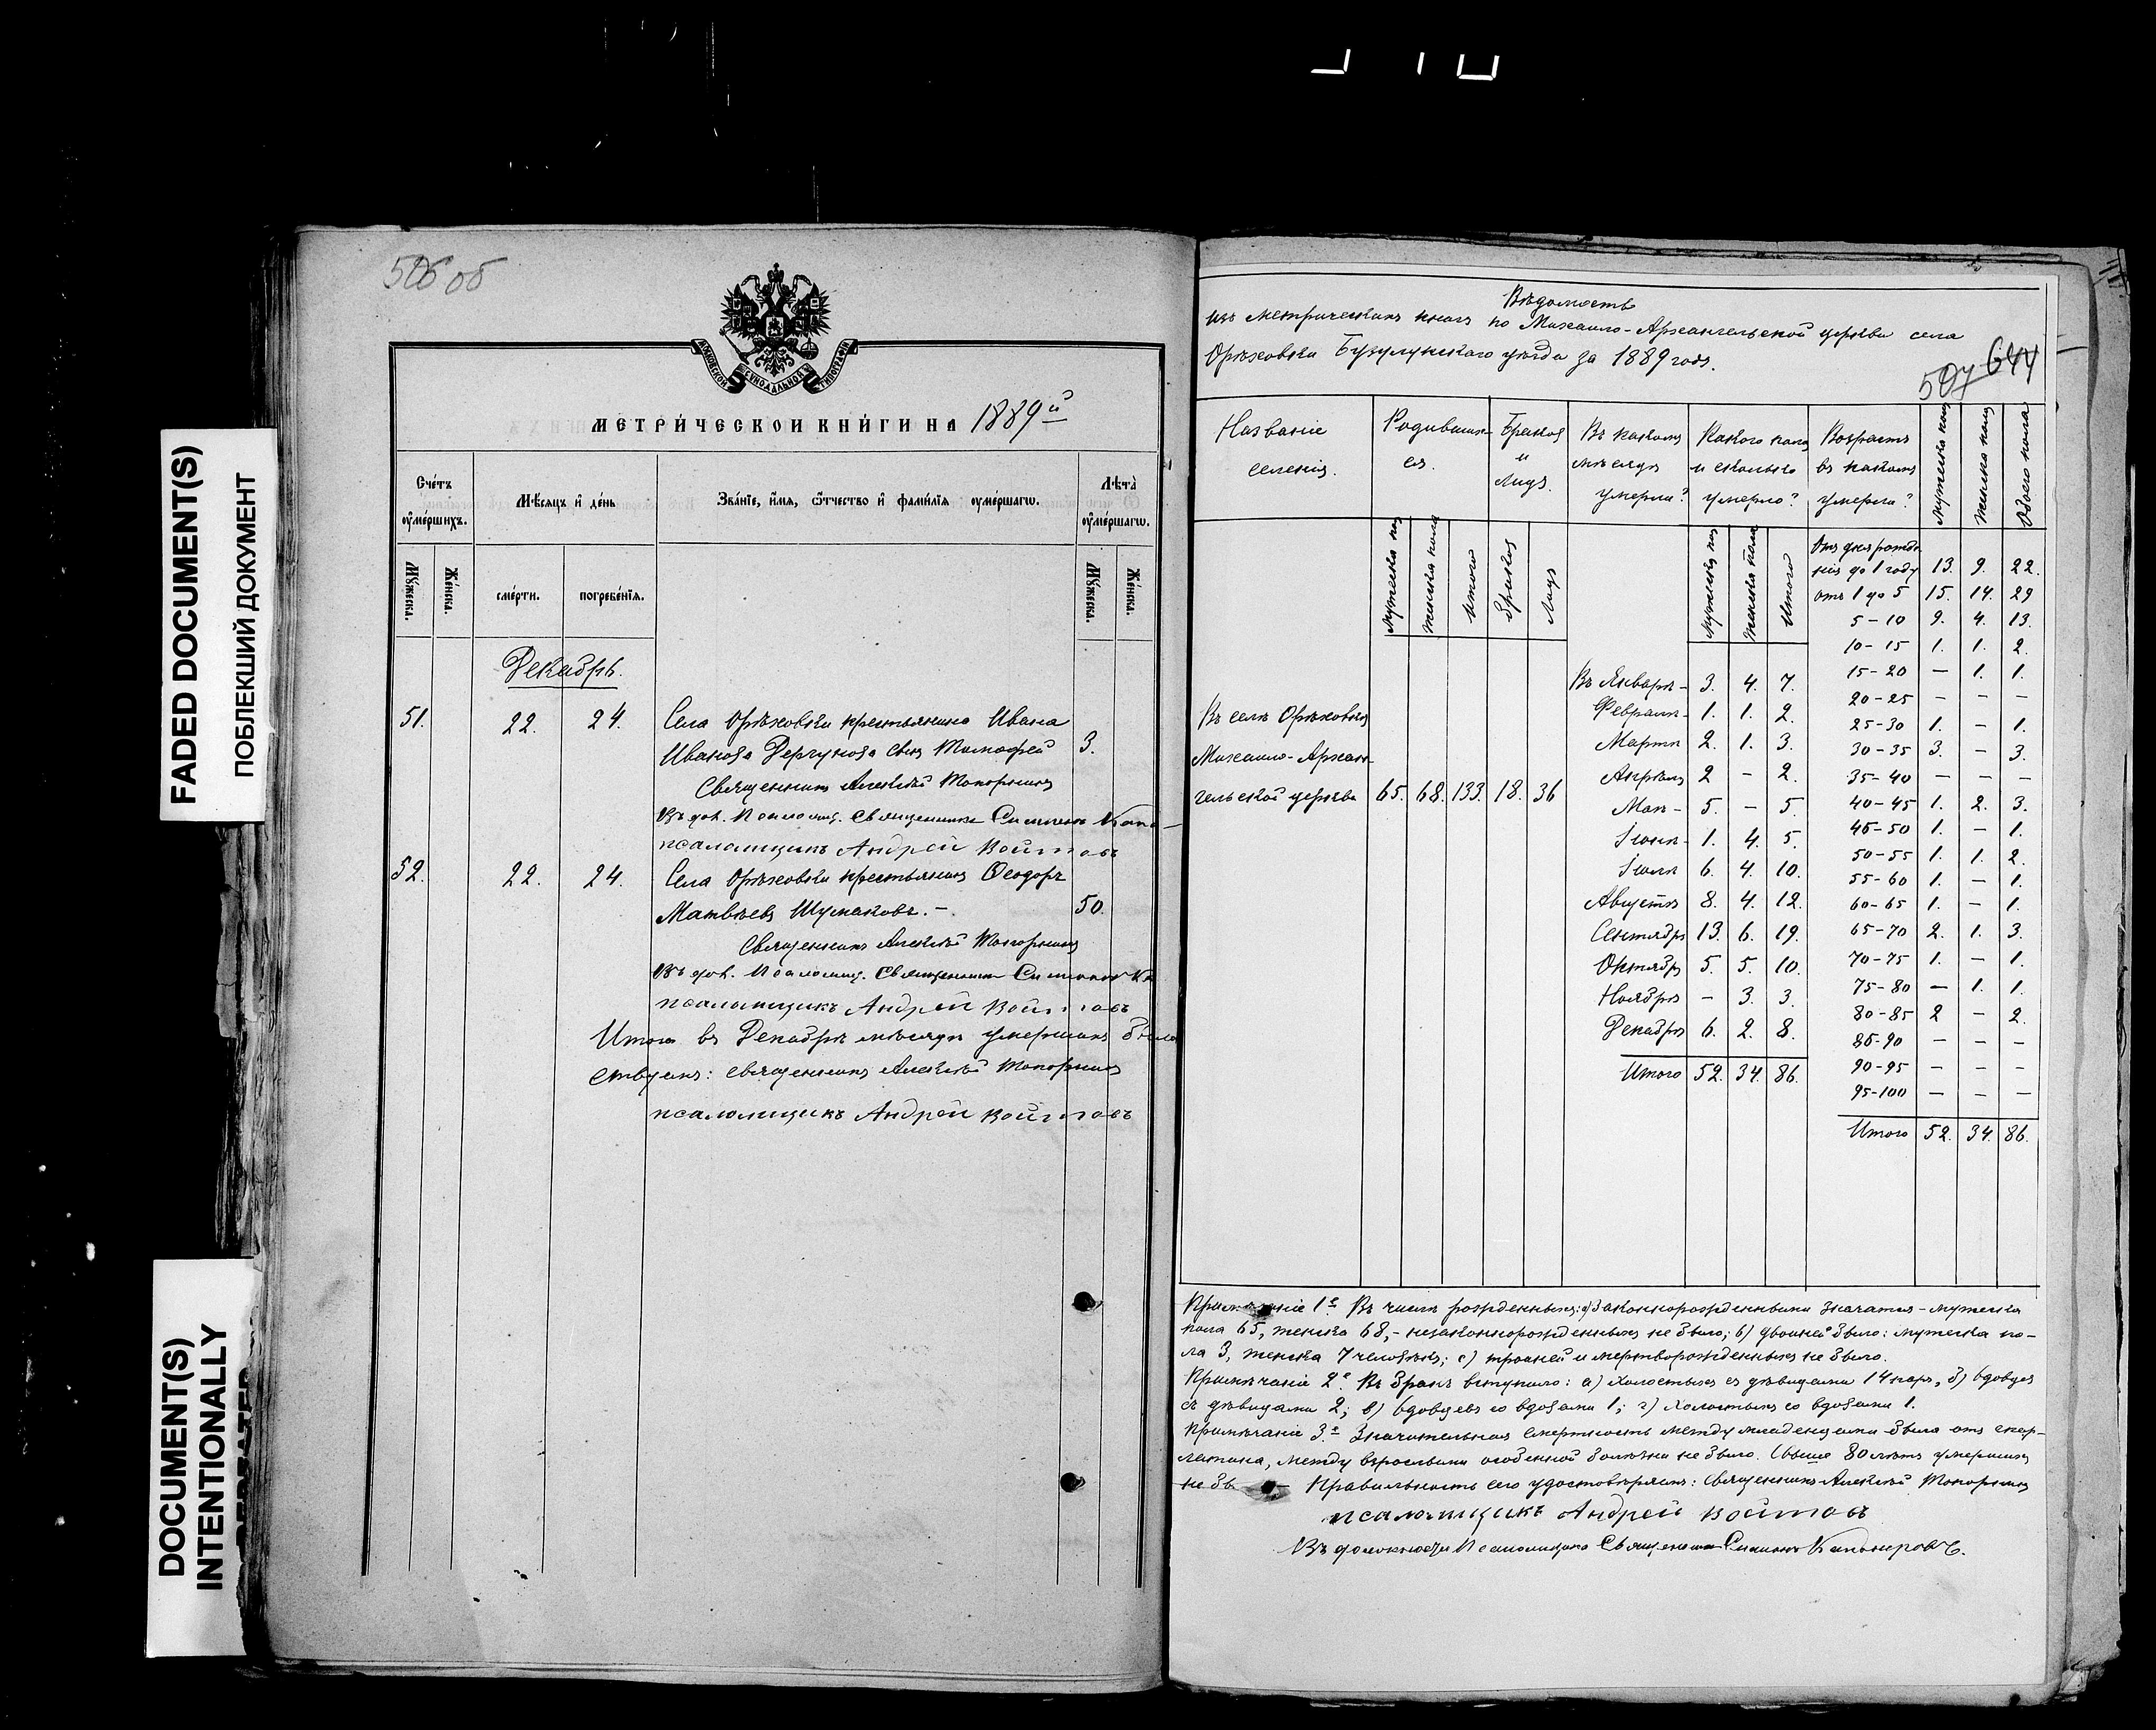 FADED DOCUMENT(S)
ПОБЛЕКШИЙ ДОКУМЕНТ
DOCUMENT(S)
INTENTIONALLY
506 об
МОСКОВСКОЙ СѴНОДАЛЬНОЙ ТИПОГРАФІИ
МЕТРИ́ЧЕСКОЙ КНИ́ГИ НА 1889й
Сче́тъ ᲂу҆ме́ршихъ.
Мѣ́сяцъ и҆ де́нь
Зва́нїе, и҆́мѧ, ѻ҆́тчество и҆ фами́лїѧ ᲂу҆ме́ршагѡ.
Лѣ̀та ᲂу҆ме́ршагѡ.
Мꙋ́жеска.
Же́нска.
сме́рти.
погребе́нїѧ.
Мꙋ́жеска.
Же́нска.
Декабрь.
51. 22. 24. Села Орѣховки крестьянина Ивана
Иванова Дергунова сынъ Тимофей 3.
Священникъ Алексѣй Топорнинъ
Въ дол. Псаломщ. Священникъ Симеонъ
псаломщикъ Андрей Войтовъ
52. 22. 24. Села Орѣховки крестьянинъ Ѳеодоръ
Матвѣевъ Шумаковъ. - 50.
Священникъ Алексѣй Топорнинъ
Въ дол. Псаломщ. Священникъ Симеонъ
псаломщикъ Андрей Войтовъ
Итого въ Декабрѣ мѣсяцѣ умершихъ было
священникъ Алексѣй Топорнинъ
псаломщикъ Андрей Войтовъ
Вѣдомость
изъ метрическихъ книгъ по Михаило-Архангельской церкви села
Орѣховки Бузулукского уѣзда за 1889 годъ.
507 644
Названіе селенія.
Родивших-ся.
Браковъ и Лицъ.
Въ какомъ мѣсяцѣ умерли?
Какого пола и сколько умерло?
Возрастъ въ какомъ умерли?
Мужеска пола
Женска пола
Обоего пола
Мужеска пола
Женска пола
Итого
Браковъ
Лицъ
Мужеска пола
Женска пола
Итого
Въ селѣ Орѣховкѣ
Михаило-Архан-
гельской церкви 65. 68. 133. 18. 36
Въ Январѣ - 3. 4. 7.
Февралѣ - 1. 1. 2.
Мартѣ 2. 1. 3.
Апрѣлѣ 2 - 2.
Маѣ - 5. - 5.
Іюнѣ - 1. 4. 5.
Іюлѣ 6. 4. 10.
Августѣ 8. 4. 12.
Сентябрѣ 13. 6. 19.
Октябрѣ 5. 5. 10.
Ноябрѣ - 3. 3.
Декабрѣ 6. 2. 8.
Итого 52. 34. 86.
Отъ дня рожде-
нія до 1 году 13. 9. 22.
отъ 1 до 5 15. 14. 29
5-10 9. 4. 13.
10-15 1. 1. 2.
15-20 — 1. 1.
20-25 - - -
25-30 1. - 1.
30-35 3. - 3.
35-40 — — —
40-45 1. 2. 3.
45-50 1. - 1.
50-55 1. 1. 2.
55-60 1. — 1.
60-65 1. - 1.
65-70 2. 1. 3.
70-75 1. — 1.
75-80 — 1. 1.
80-85 2 - 2.
85-90 — — —
90-95 — — —
95-100 — — —
Итого 52. 34. 86.
Примѣчаніе 1е Въ числѣ рожденныхъ: а) Законнорожденными значатся - мужеска
пола 65, женска 68, - незаконнорожденныхъ не было; в) двойней было: мужеска по-
ла 3, женска 7 человѣкъ; с) тройней и мертворожденныхъ не было.
Примѣчаніе 2е. Въ бракъ вступило: а) холостыхъ съ дѣвицами 14 паръ, б) вдовцев
съ дѣвицами 2; в) вдовцевъ со вдовами 1; г) холостыхъ со вдовами 1.
Примѣчаніе 3е Значительная смертность между младенцами была отъ скар-
латина, между взрослыми особенной болѣзни не было. Свыше 80 лѣтъ умершихъ
не бы Правильность сего удостовѣряемъ: Священникъ Алексѣй Топорнинъ
псаломщикъ Андрей Войтовъ
Въ должности Псаломщика Священникъ Симеонъ